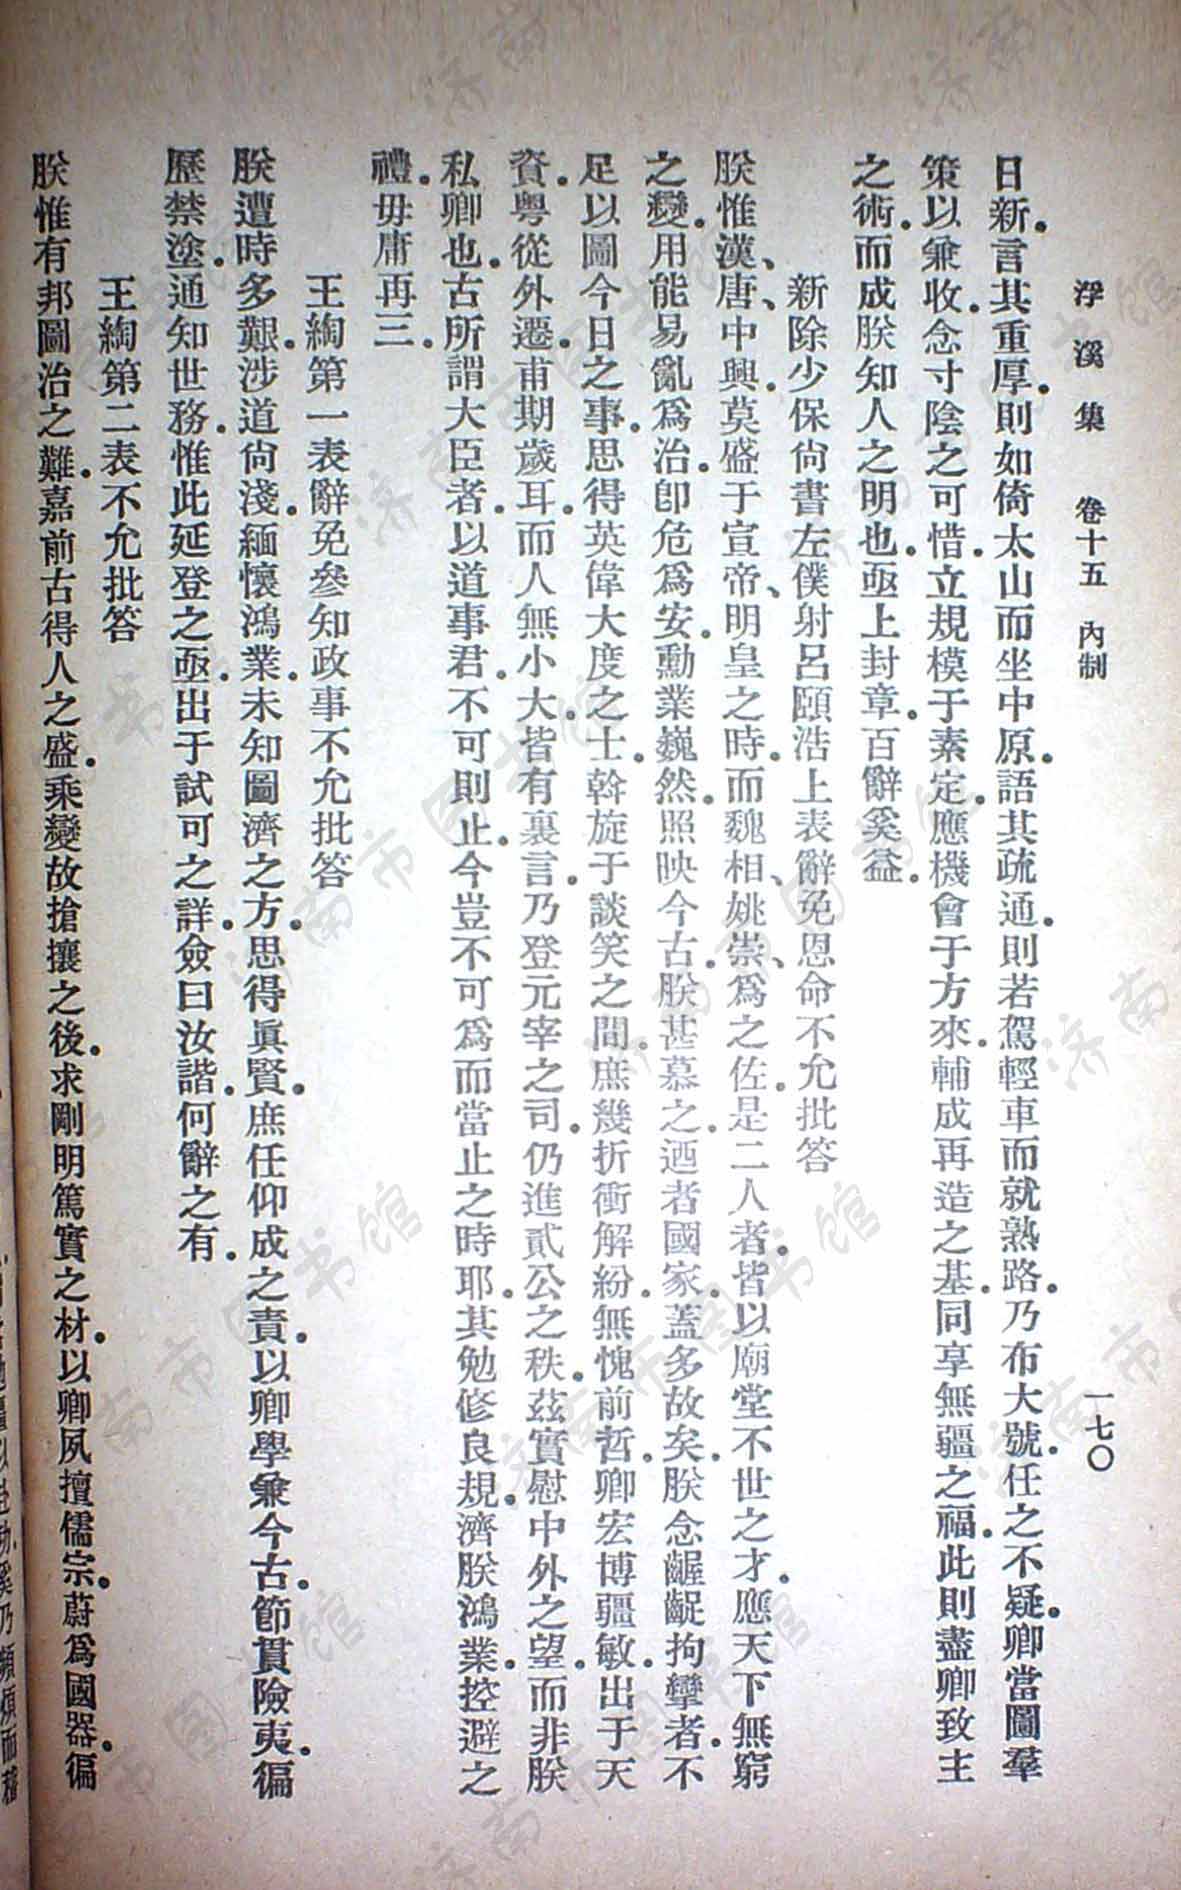 浮溪集 卷十五 內制 一七〇
日新．言其重厚．則如倚太山而坐中原．語其疏通．則若駕輕車而就熟路．乃布大號．任之不疑．卿當圖羣
策以兼收．念寸陰之可惜．立規模于素定．應機會于方來．輔成再造之基．同享無疆之福．此則盡卿致主
之術．而成朕知人之明也．亟上封章．百辭奚益．
新除少保尙書左僕射呂頤浩上表辭免恩命不允批答
朕惟漢、唐、中興．莫盛于宣帝、明皇之時．而魏相、姚崇、爲之佐．是二人者．皆以廟堂不世之才．應天下無窮
之變．用能易亂爲治．卽危爲安．勳業巍然．照映今古．朕甚慕之．迺者國家．蓋多故矣．朕念齷齪拘攣者．不
足以圖今日之事．思得英偉大度之士．斡旋于談笑之間．庶幾折衝解紛．無愧前哲．卿宏博疆敏．出于天
資．粤從外遷．甫期歲耳．而人無小大．皆有裏言．乃登元宰之司．仍進貳公之秩．茲實慰中外之望．而非朕
私卿也．古所謂大臣者．以道事君．不可則止．今豈不可爲而當止之時耶．其勉修良規．濟朕鴻業．控避之
禮．毋庸再三．
王綯第一表辭免參知政事不允批答
朕遭時多艱．涉道尙淺．緬懷鴻業．未知圖濟之方．思得眞賢．庶任仰成之責．以卿學兼今古．節貫險夷．徧
歷禁塗．通知世務．惟此延登之亟．出于試可之詳．僉曰汝諧．何辭之有．
王綯第二表不允批答
朕惟有邦圖治之難．嘉前古得人之盛．乘變故搶攘之後．求剛明篤實之材．以卿夙擅儒宗．蔚爲國器．徧